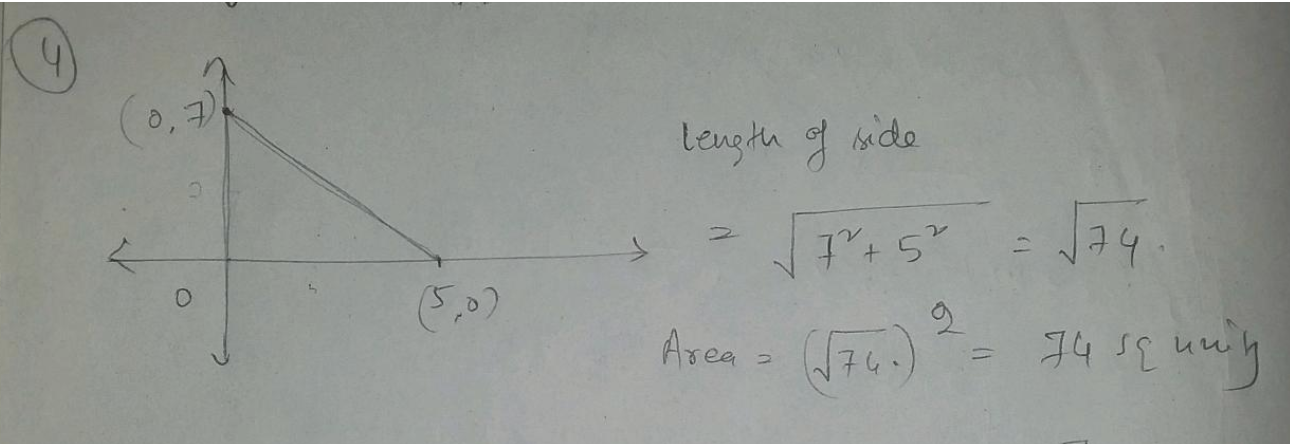 4
(0, 7)
0
(5,0)
length of side
= √(7² + 5²) = √74.
Area = (√74.)² = 74 sq units